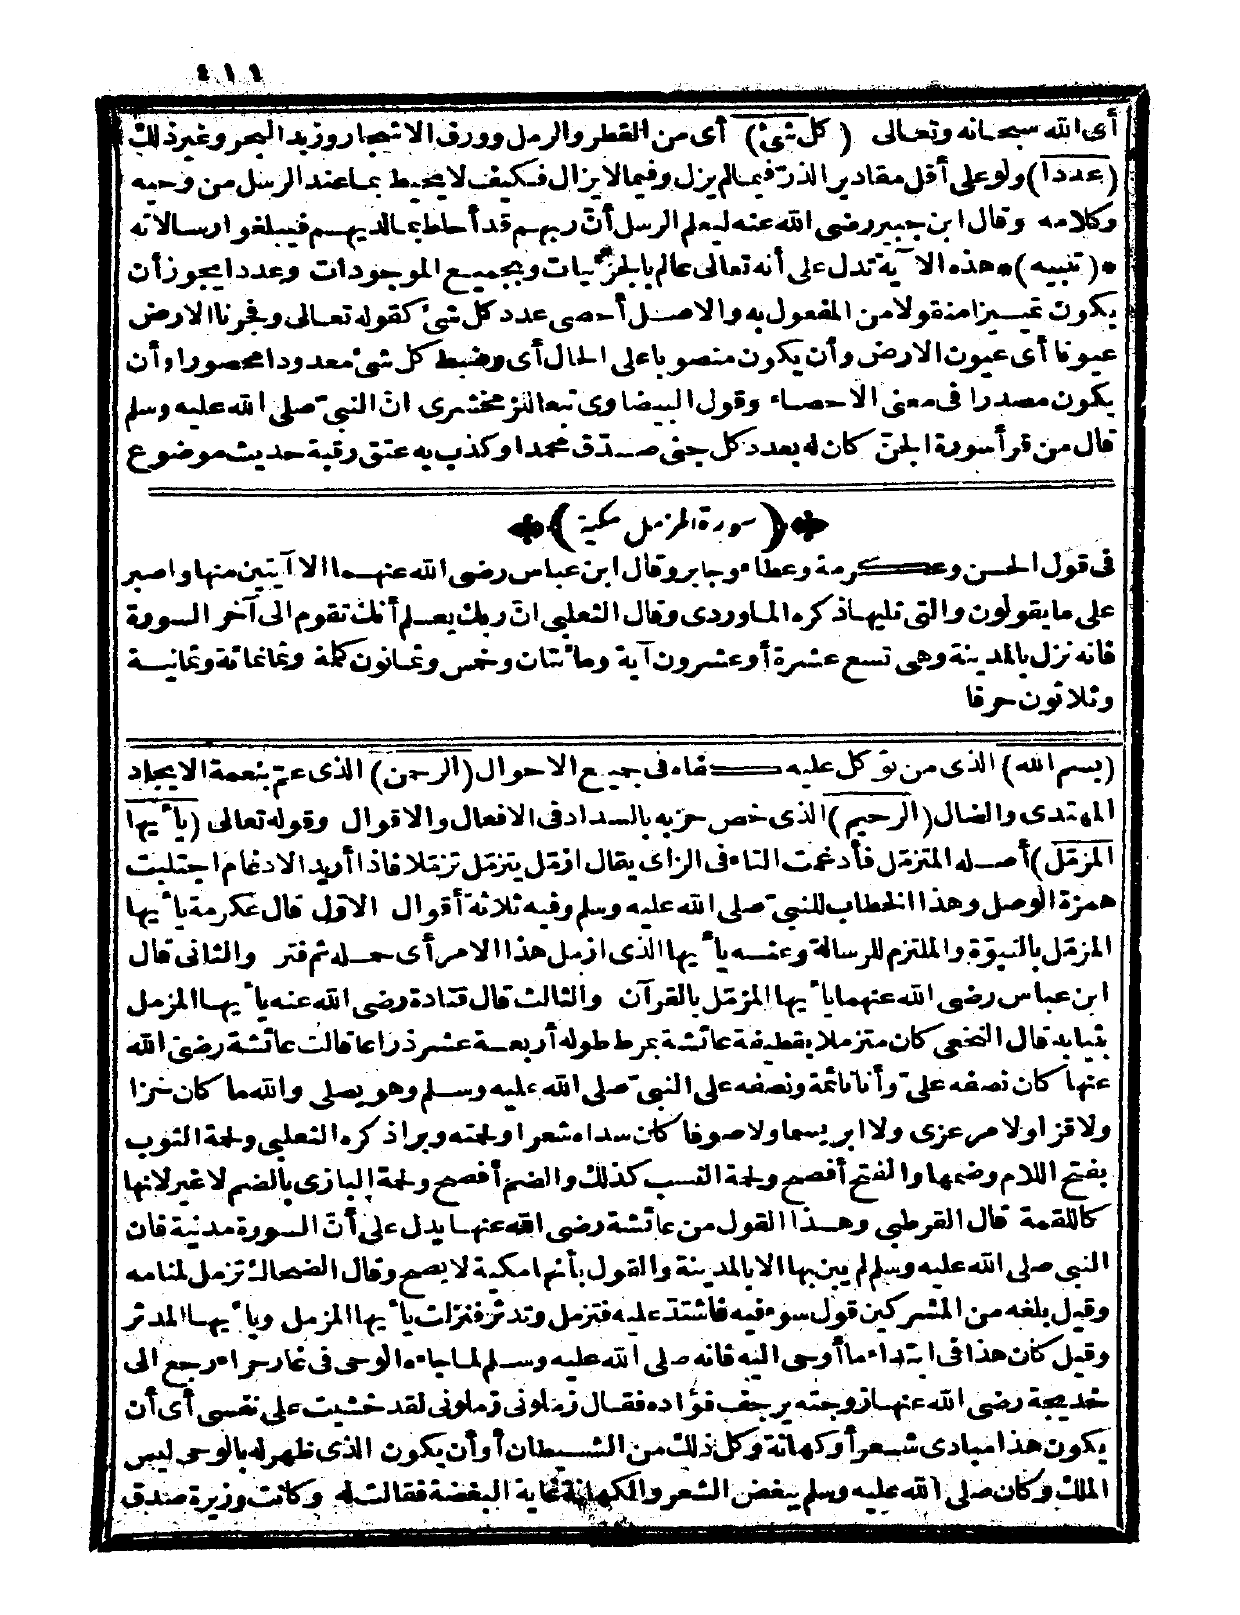 ٤١١
أى الله سبحانه وتعالى (كل شئ) أى من القطر والرمل وورق الاشجار وزبد البحر وغير ذلك
(عددا) ولو على أقل مقادير الذر فيما لم يزل وفيما لا يزال فكيف لا يحيط بما عند الرسل من وحيه
وكلامه وقال ابن جبير رضى الله عنه ليعلم الرسل أنّ ربهم قد أحاط بما لديهم فيبلغوا رسالاته
*(تنبيه)* هذه الا آية تدل على أنه تعالى عالم بالجزئيات وبجميع الموجودات وعددا يجوز أن
يكون تمييزا منقولا من المفعول به والاصل أحصى عدد كل شئ كقوله تعالى وفجرنا الارض
عيونا أى عيون الارض وأن يكون منصوبا على الحال أى وضبط كل شئ معدودا محصورا وأن
يكون مصدرا فى معنى الاحصاء وقول البيضاوى تبعا للزمخشرى انّ النبىّ صلى الله عليه وسلم
قال من قرأ سورة الجنّ كان له بعدد كل جنى صدّق محمدا وكذب به عتق رقبة حديث موضوع
(سورة المزمل مكية)
فى قول الحسن وعكرمة وعطاء وجابر وقال ابن عباس رضى الله عنهما الا آيتين منها واصبر
على ما يقولون والتى تليها ذكره الماوردى وقال الثعلبى انّ ربك يعلم أنك تقوم الى آخر السورة
فانه نزل بالمدينة وهى تسع عشرة أو عشرون آية ومائتان وخمس وثمانون كلمة وثمانمائة وثمانية
وثلاثون حرفا
(بسم الله) الذى من توكل عليه كفاه فى جميع الاحوال (الرحمن) الذى عمّ بنعمة الايجاد
المهتدى والضال (الرحيم) الذى خص حزبه بالسداد فى الافعال والاقوال وقوله تعالى (يا أيها
المزمّل) أصله المتزمّل فأدغمت التاء فى الزاى يقال ازمّل يتزمّل تزمّلا فاذا أريد الادغام اجتلبت
همزة الوصل وهذا الخطاب للنبىّ صلى الله عليه وسلم وفيه ثلاثة أقوال الاوّل قال عكرمة يا أيها
المزمّل بالنبوّة والملتزم للرسالة وعنه يا أيها الذى ازمل هذا الامر أى حمله ثم فتر والثانى قال
ابن عباس رضى الله عنهما يا أيها المزمّل بالقرآن والثالث قال قتادة رضى الله عنه يا أيها المزمل
بثيابه قال النخعى كان متزملا بقطيفة عائشة بمرط طوله أربعة عشر ذراعا قالت عائشة رضى الله
عنها كان نصفه علىّ وأنا نائمة ونصفه على النبىّ صلى الله عليه وسلم وهو يصلى والله ما كان خزا
ولا قزا ولا مرعزى ولا ابريسما ولا صوفا كان سداه شعرا ولحمته وبرا ذكره الثعلبى ولحمة الثوب
بفتح اللام وضمها والفتح أفصح ولحمة النسب كذلك والضم أفصح ولحمة البازى بالضم لا غير لانها
كاللقمة قال القرطبى وهذا القول من عائشة رضى الله عنها يدل على أنّ السورة مدنية فان
النبى صلى الله عليه وسلم لم يبن بها الا بالمدينة والقول بأنها مكية لا يصح وقال الضحاك تزمل لمنامه
وقيل بلغه من المشركين قول سوء فيه فاشتدّ عليه فتزمل وتدثر فنزلت يا أيها المزمل ويا أيها المدثر
وقيل كان هذا فى ابتداء ما أوحى اليه فانه صلى الله عليه وسلم لما جاءه الوحى فى غار حراء رجع الى
خديجة رضى الله عنها زوجته يرجف فؤاده فقال زملونى زملونى لقد خشيت على نفسى أى أن
يكون هذا مبادى شعر أو كهانة وكل ذلك من الشيطان أو أن يكون الذى ظهر له بالوحى ليس
الملك وكان صلى الله عليه وسلم يبغض الشعر والكهانة غاية البغضة فقالت له وكانت وزيرة صدق